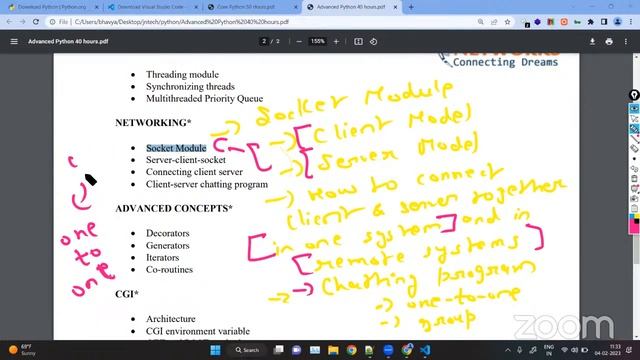 Download Python | Python.org
Download Visual Studio Code -
Core Python 50 Hours.pdf
Advanced Python 40 hours.pdf
File | C:/Users/bhavya/Desktop/jntech/python/Advanced%20Python%2040%20hours.pdf
Advanced Python 40 hours.pdf
2 / 2
155%
NETWORKS
Connecting Dreams
• Threading module
• Synchronizing threads
• Multithreaded Priority Queue
NETWORKING*
• Socket Module
• Server-client-socket
• Connecting client server
• Client-server chatting program
ADVANCED CONCEPTS*
• Decorators
• Generators
• Iterators
• Co-routines
CGI*
• Architecture
• CGI environment variable
-> Socket Module
-> Client Model
-> Server Model
-> How to connect
client & server together
in one system and in
remote systems
-> Chatting program
-> one-to-one
-> group
one
to
one
zoom
69°F
Sunny
ENG
IN
11:33
04-02-2023